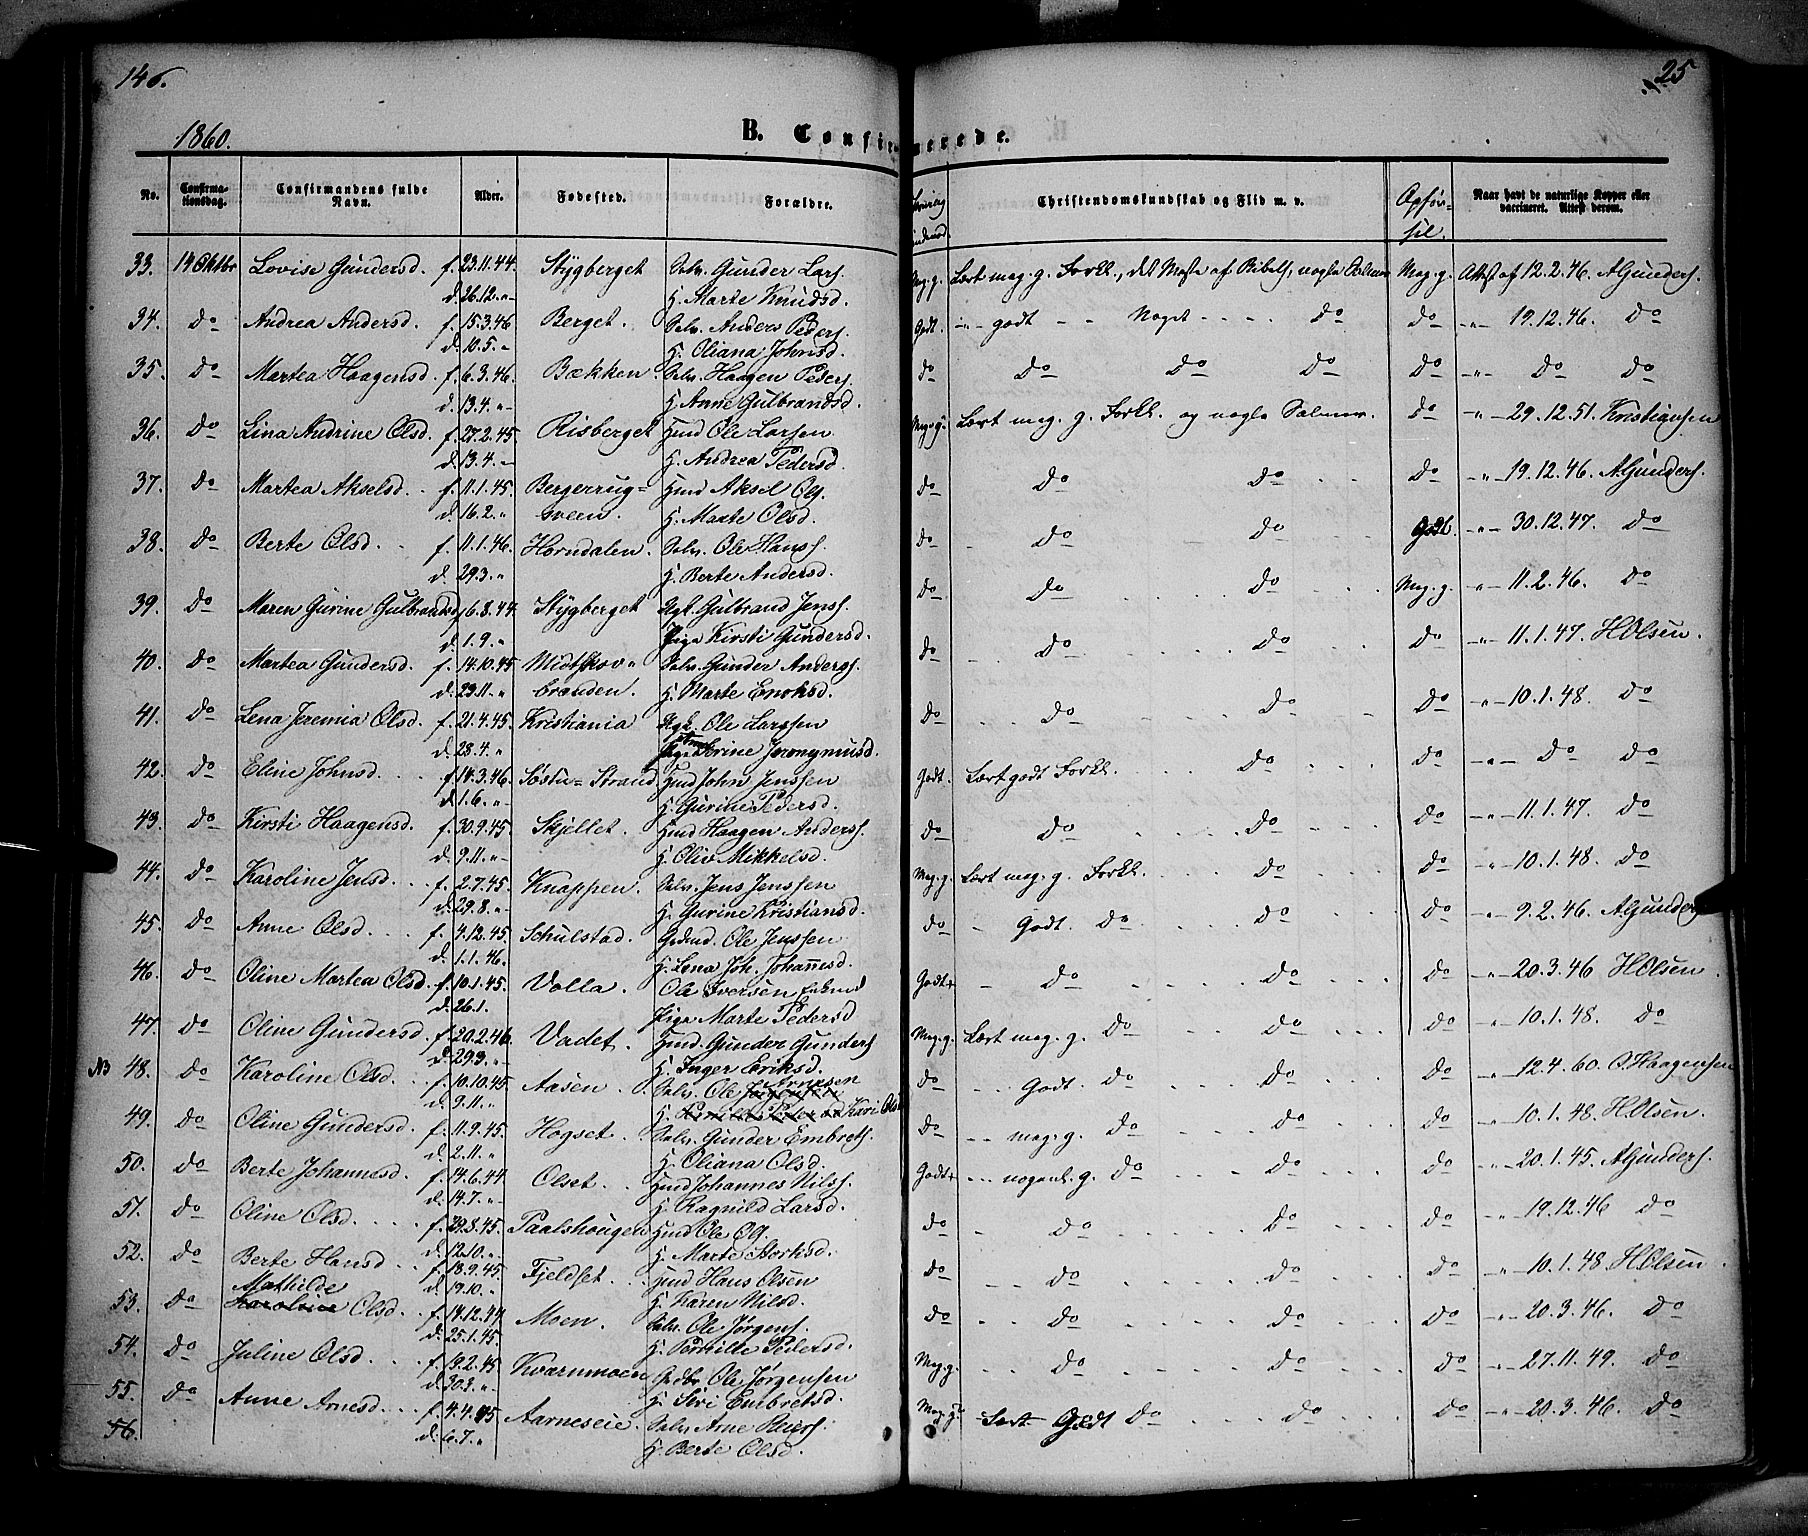 146.
25
1860.
B. Confirmerede.
No.
Confirma-
tionsdag.
Confirmandens fulde
Navn.
Alder.
Fødested.
Forældre.
Christendomskundskab og Flid m. v.
Opfør-
sel.
Naar havt de naturlige Kopper eller
vaccineret. Attest derom.
33. 14 Oktbr Lovise Gundersd. f. 23.11.44. Stygberget Selv. Gunder Lars. Meg. g. Lært meg. g. Forkl., det Meste af Bibelh, nogle Salmer Meg. g. Attest af 12.2.46. AGunders.
d. 26.12. „ H. Marte Knudsd.
34. do Andrea Andersd. f. 15.3.46 Berget. Selv. Anders Peders. Godt. -„- godt - - Noget - - - - do do -„- 19.12.46. do
d. 10.5. „ H. Oliana Johnsd.
35. do Martea Haagensd. f. 6.3.46. Bækken Selv. Haagen Peders. do do do do do -„- do do
d. 13.4. „ H. Anne Gulbrandsd.
36. do Lina Andrine Olsd. f. 27.2.45 Risberget Hmd Ole Larsen Meg. g. Lært meg. g. Forkl. og nogle Salmer. do „ 29.12.51. Kristiansen
d. 13.4. „ H. Andrea Pedersd.
37. do Martea Akselsd. f. 11.1.45. Bergerrug= Hmd Aksel Ols. do do do do „ 19.12.46. AGunders.
d. 16.2. „ sveen. H. Marte Olsd.
38. do Berte Olsd. f. 11.1.46. Horndalen. Selv. Ole Hans. do do do Godt. -„- 30.12.47. do
d. 29.3. „ H. Berte Andersd.
39. do Maren Gurine Gulbrandsd. f. 6.8.44. Stygberget Ugk. Gulbrand Jens. do do do Meg. g. „ 11.2.46. do
d. 1.9. „ Pige Kirsti Gundersd.
40. do Martea Gundersd. f. 14.10.45 Midtskov= Selv. Gunder Anders. do do do do -„- 11.1.47. HOlsen.
d. 23.11. „ branden. H. Marte Enoksd.
41. do Lena Jeremia Olsd. f. 21.4.45. Kristiania Ugk. Ole Larssen do do do do „ 10.1.48. do
d. 28.4. „ Serine Jeronymusd.
42. do Eline Johnsd. f. 14.3.46. Søstu=Strand Hmd John Jenssen Godt. Lært godt Forkl. do do -„- do do
d. 1.6. „ H. Gurine Pedersd.
43. do Kirsti Haagensd. f. 30.9.45. Skjellet. Hmd Haagen Anders. do do do do -„- 11.1.47. do
d. 9.11. „ H. Oliv Mikkelsd.
44. do Karoline Jensd. f. 2.7.45. Knappen. Selv. Jens Jenssen Meg. g. Lært meg. g. Forkl. do do „ 10.1.48. do
d. 29.8. „ H. Gurine Kristiansd.
45. do Anne Olsd. f. 4.12.45. Schulstad. Grdmd. Ole Jenssen do - Godt. do do do -„- 9.2.46. AGunders
d. 1.1.46. H. Lena Joh. Johannesd.
46. do Oline Martea Olsd. f. 10.1.45. Volla. Ole Iversen Enkmd Godt+ - do do do -„- 20.3.46 HOlsen.
d. 26.1. Pige Marte Pedersd
47. do Oline Gundersd. f. 20.2.46. Vadet. Hmd. Gunder Gunders Meg. g. Lært meg. g. do do do -„- 10.1.48. do
d. 29.3. „ H. Inger Eriksd.
NB 48. do Karoline Olsd. f. 10.10.45 Aasen. Selv. Ole Arnesen do - - Godt. do do do -„- 12.4.60. O.Haagensen
d. 9.11. „ H. Kari Olsd
49. do Oline Gundersd. f. 11.9.45. Hogset. Selv. Gunder Embrets. do - - meg. g. do do do -„- 10.1.48. HOlsen.
d. 2.11. „ H. Oliana Olsd.
50. do Berte Johannesd. f. 14.6.44 Olset. Hmd Johannes Nils. Godt+ - - nogenl. g. do do do -„- 20.1.45. AGunders.
d. 14.7. „ H. Ragnild Larsd.
51. do Oline Olsd. f. 29.8.45. Paalshaugen Hmd Ole Ols. do - do do do -„- 19.12.46 do
d. 12.10. „ H. Marte Storksd.
52. do Berte Hansd. f. 18.9.45. Fjeldset. Hmd Hans Olsen do - - do do do -„- 10.1.48. HOlsen.
d. 19.10. „ H. Karen Nilsd.
Mathilde
53. do Karoline Olsd. f. 14.12.44 Moen. Selv. Ole Jørgens. do do do do -„- 20.3.46. do
d. 25.1.45. H. Pernille Pedersd.
54. do Juline Olsd. f. 19.2.45 Kvarnmoen Grdbr Ole Jørgensen Meg. g. do do do -„- 27.11.49. do
d. 30.3. „ H. Siri Embretsd.
55. do Anne Arnesd. f. 4.4.45 Aarneseie. Selv. Arne Meg. g. Lært Godt do do do -„- 20.3.46. do
56. d. 6.7. „ H. Berte Olsd.